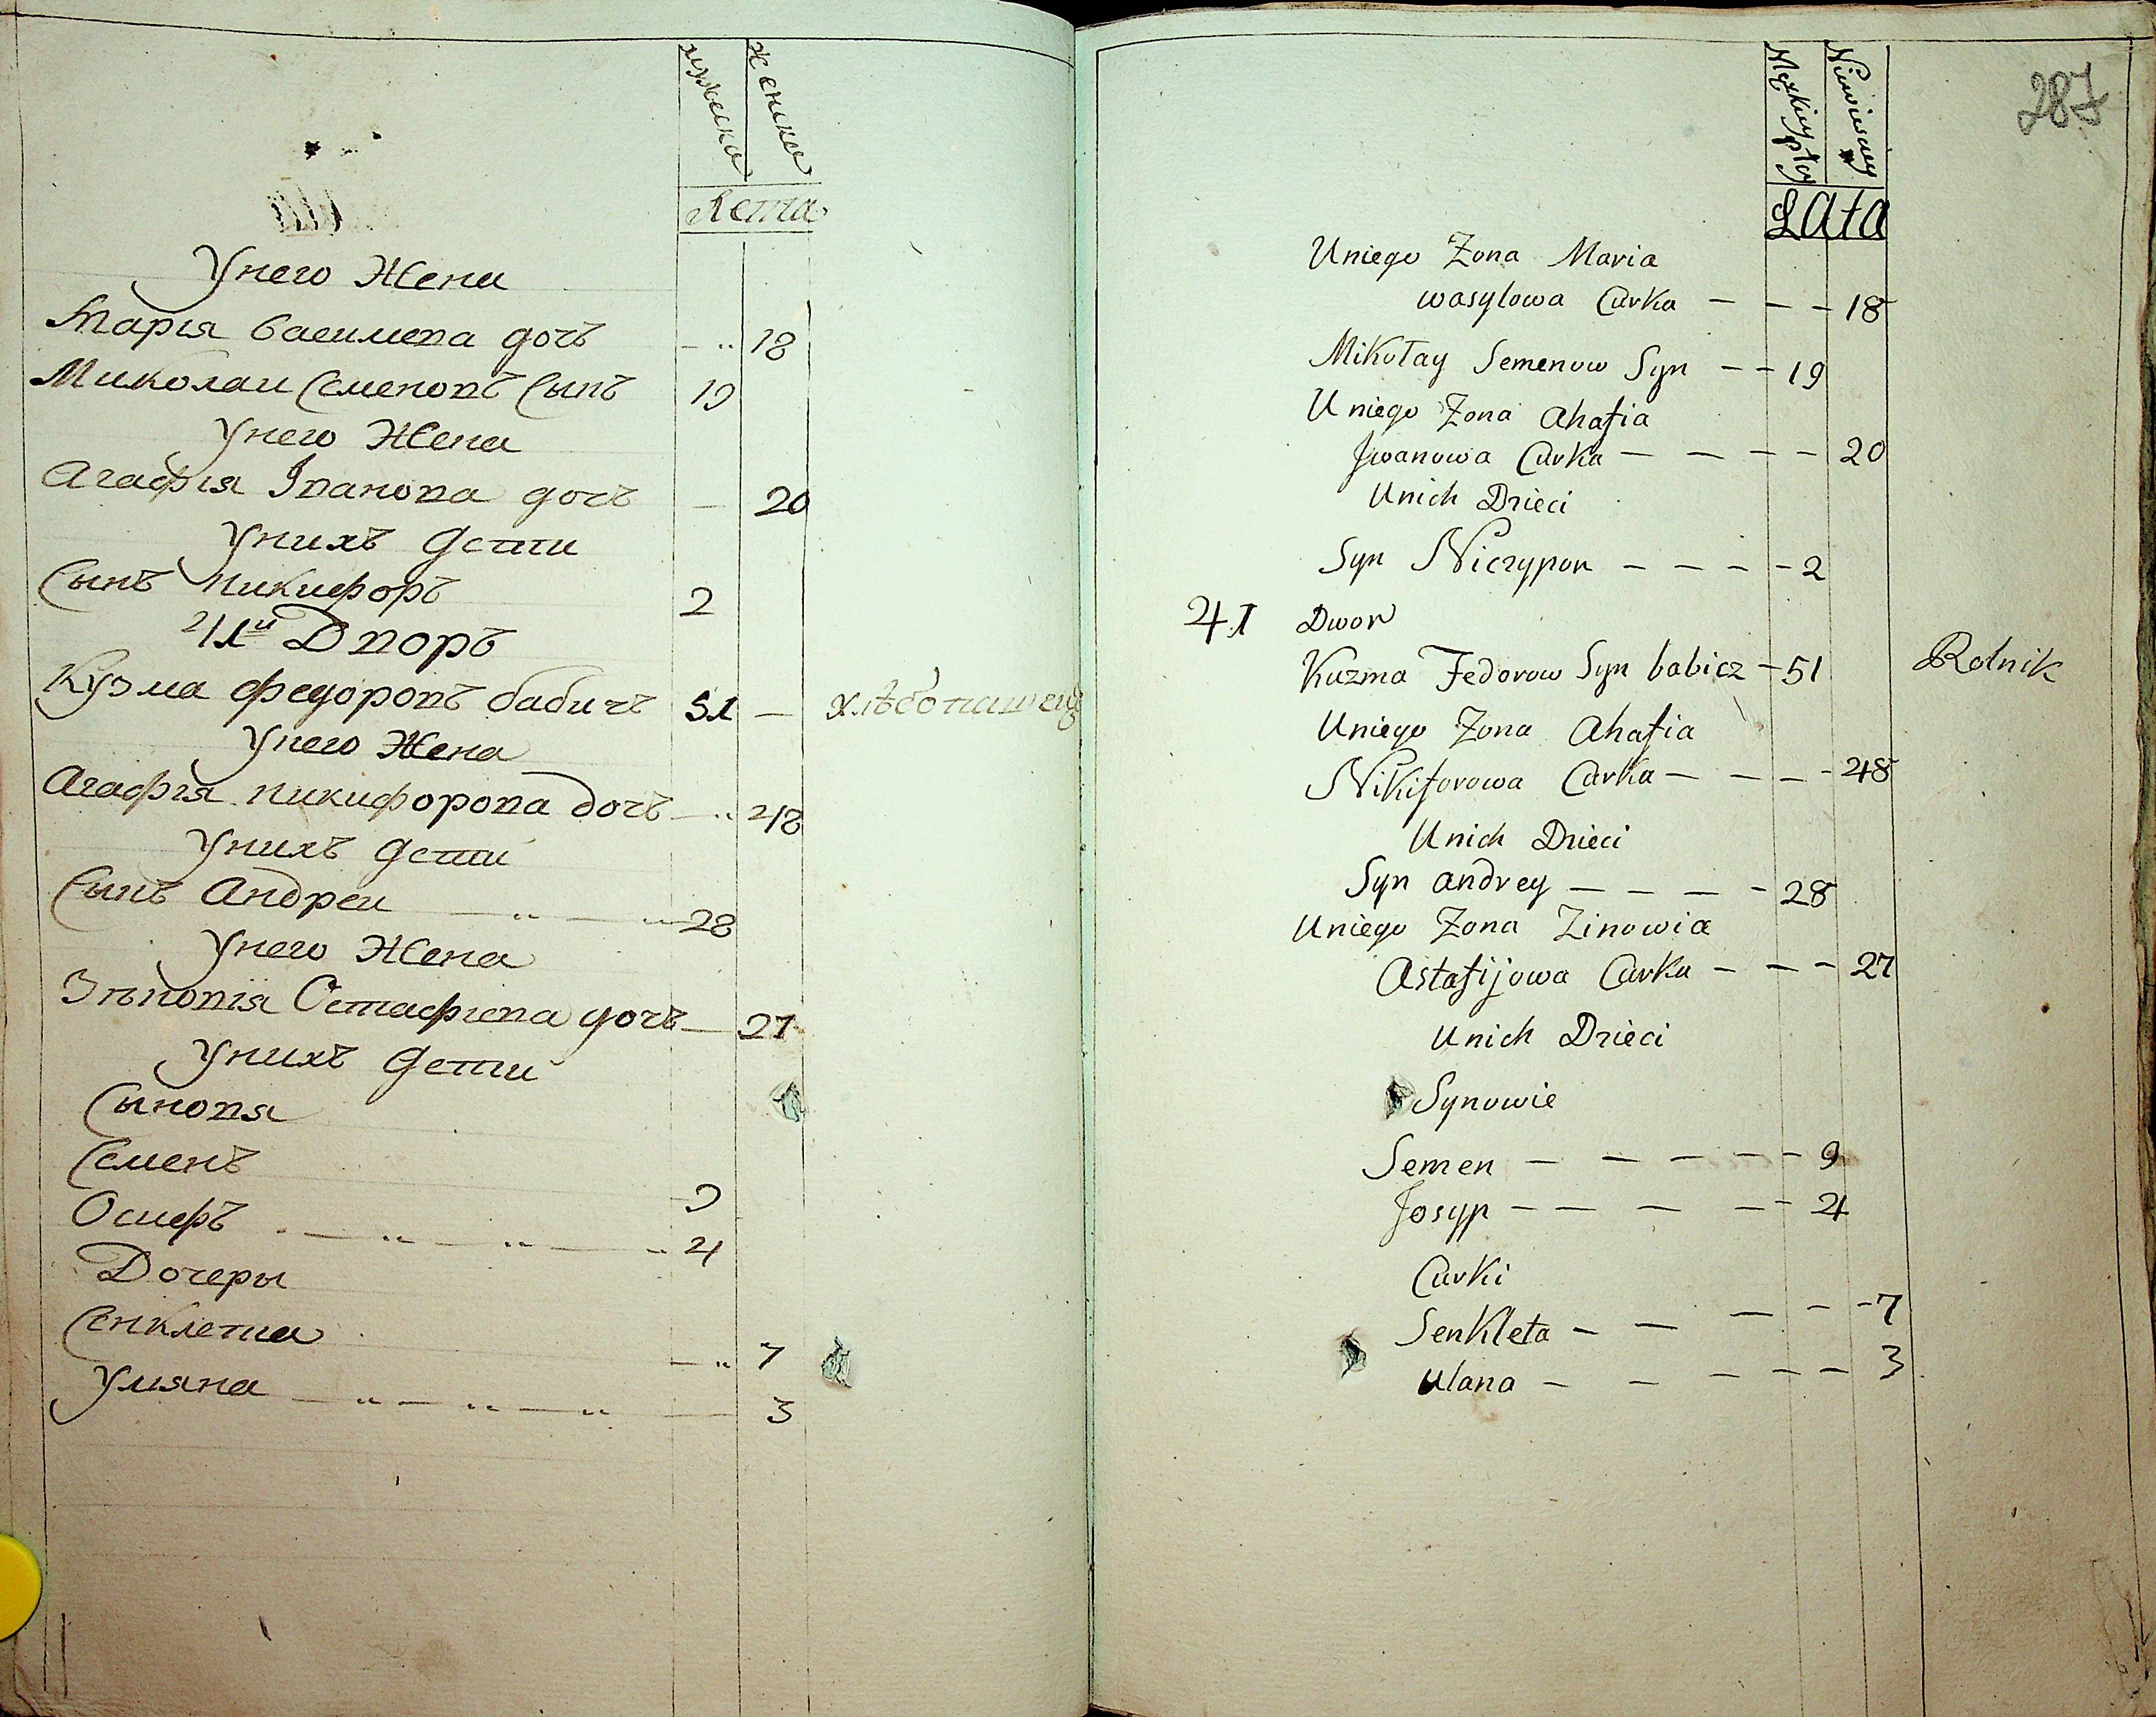 мужеска
женска
Лета
Унего Жена
Марія василева дочъ -- 18
Миколаи Семеновъ Сынъ 19
Унего Жена
Агафія Іванова дочъ — 20
Унихъ дети
Сынъ никифоръ 2
41й Дворъ
Кузма федоровъ бабичъ 51 — хлѣбопашец
Унего Жена
Агафія никифорова дочъ — 48
Унихъ дети
Сынъ Андреи — 28
Унего Жена
Зѣновія Остафіева дочъ — 27
Унихъ дети
Сыновя
Семенъ 9
Осифъ — 4
Дочеры
Сенклета — 7
Уляна — 3
287
Męzkiey płcy
Niewiesciey
LAta
Uniego Zona Maria
wasylowa Curka — — — 18
Mikołay Semenow Syn — — 19
Uniego Zona ahafia
Jwanowa Curka — — — — 20
Unich Dzieci
Syn Niczypor — — — — 2
41 Dwor
Kuzma Fedorow Syn babicz — 51 Rolnik
Uniego Zona Ahafia
Nikiforowa Curka — — — — 48
Unich Dzieci
Syn andrey — — — — 28
Uniego Zona Zinowia
Astafijowa Curka — — — 27
Unich Dzieci
Synowie
Semen — — — — — 9
Josyp — — — — — 4
Curki
SenKleta — — — — — 7
Ulana — — — — — 3